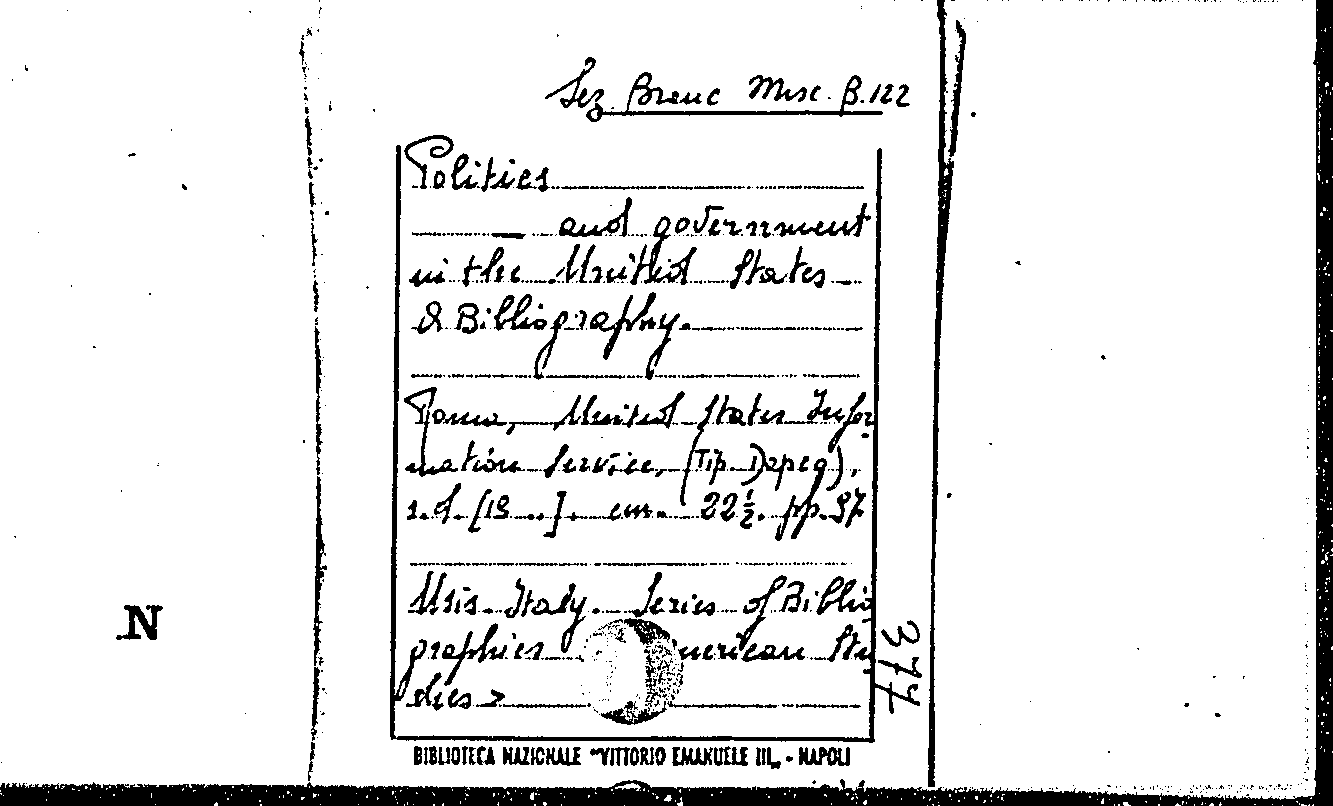 Sez. Brenc Misc. B.122
Politics
— and government
in the United States
A Bibliography.
Roma, United States Infor
mation Service, (Tip. Dapeg),
s.d. [19 ..]. cm. 22½. pp. 37
Usis. Italy. Series of Biblio
graphies merican Stu
dies >
377
N
BIBLIOTECA NAZIONALE "VITTORIO EMANUELE III„ - NAPOLI